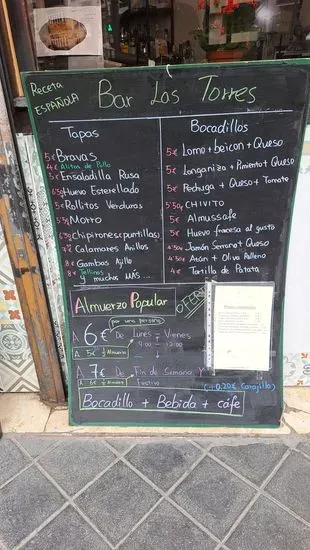 Receta
ESPAÑOLA
Bar Las Torres
Tapas
5€ Bravas
4€ Alitas de Pollo
5€ Ensaladilla Rusa
6,5€ Huevo Estrellado
5€ Rollitos Verduras
5,5€ Morro
6,5€ Chipirones (puntillas)
7€ Calamares Anillos
8€ Gambas Ajillo
8€ Tellinas
y muchos más...
Bocadillos
5€ Lomo + beicon + Queso
5€ Longaniza + Pimiento + Queso
5€ Pechuga + Queso + Tomate
5'50€ CHIVITO
5€ Almussafe
5€ Huevo francesa al gusto
4'50€ Jamón Serrano + Queso
4'50€ Atún + Oliva Rellena
4€ Tortilla de Patata
Almuerzo Popular
OFERTA
por una persona
A 6€ De Lunes - Viernes
A 5€ ½ Almuerzo
9:00 - 12:00
A 7€ De Fin de Semana y
A 6€ ½ Almuerzo
Festivo
(+0,20€ Carajillo)
Bocadillo + Bebida + café